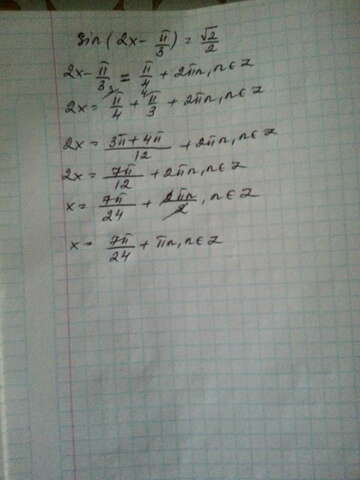 sin(2x - π/3) = √2/2
2x - π/3 = π/4 + 2πn, n∈Z
2x = π/4 + π/3 + 2πn, n∈Z
2x = (3π + 4π)/12 + 2πn, n∈Z
2x = 7π/12 + 2πn, n∈Z
x = 7π/24 + 2πn/2, n∈Z
x = 7π/24 + πn, n∈Z